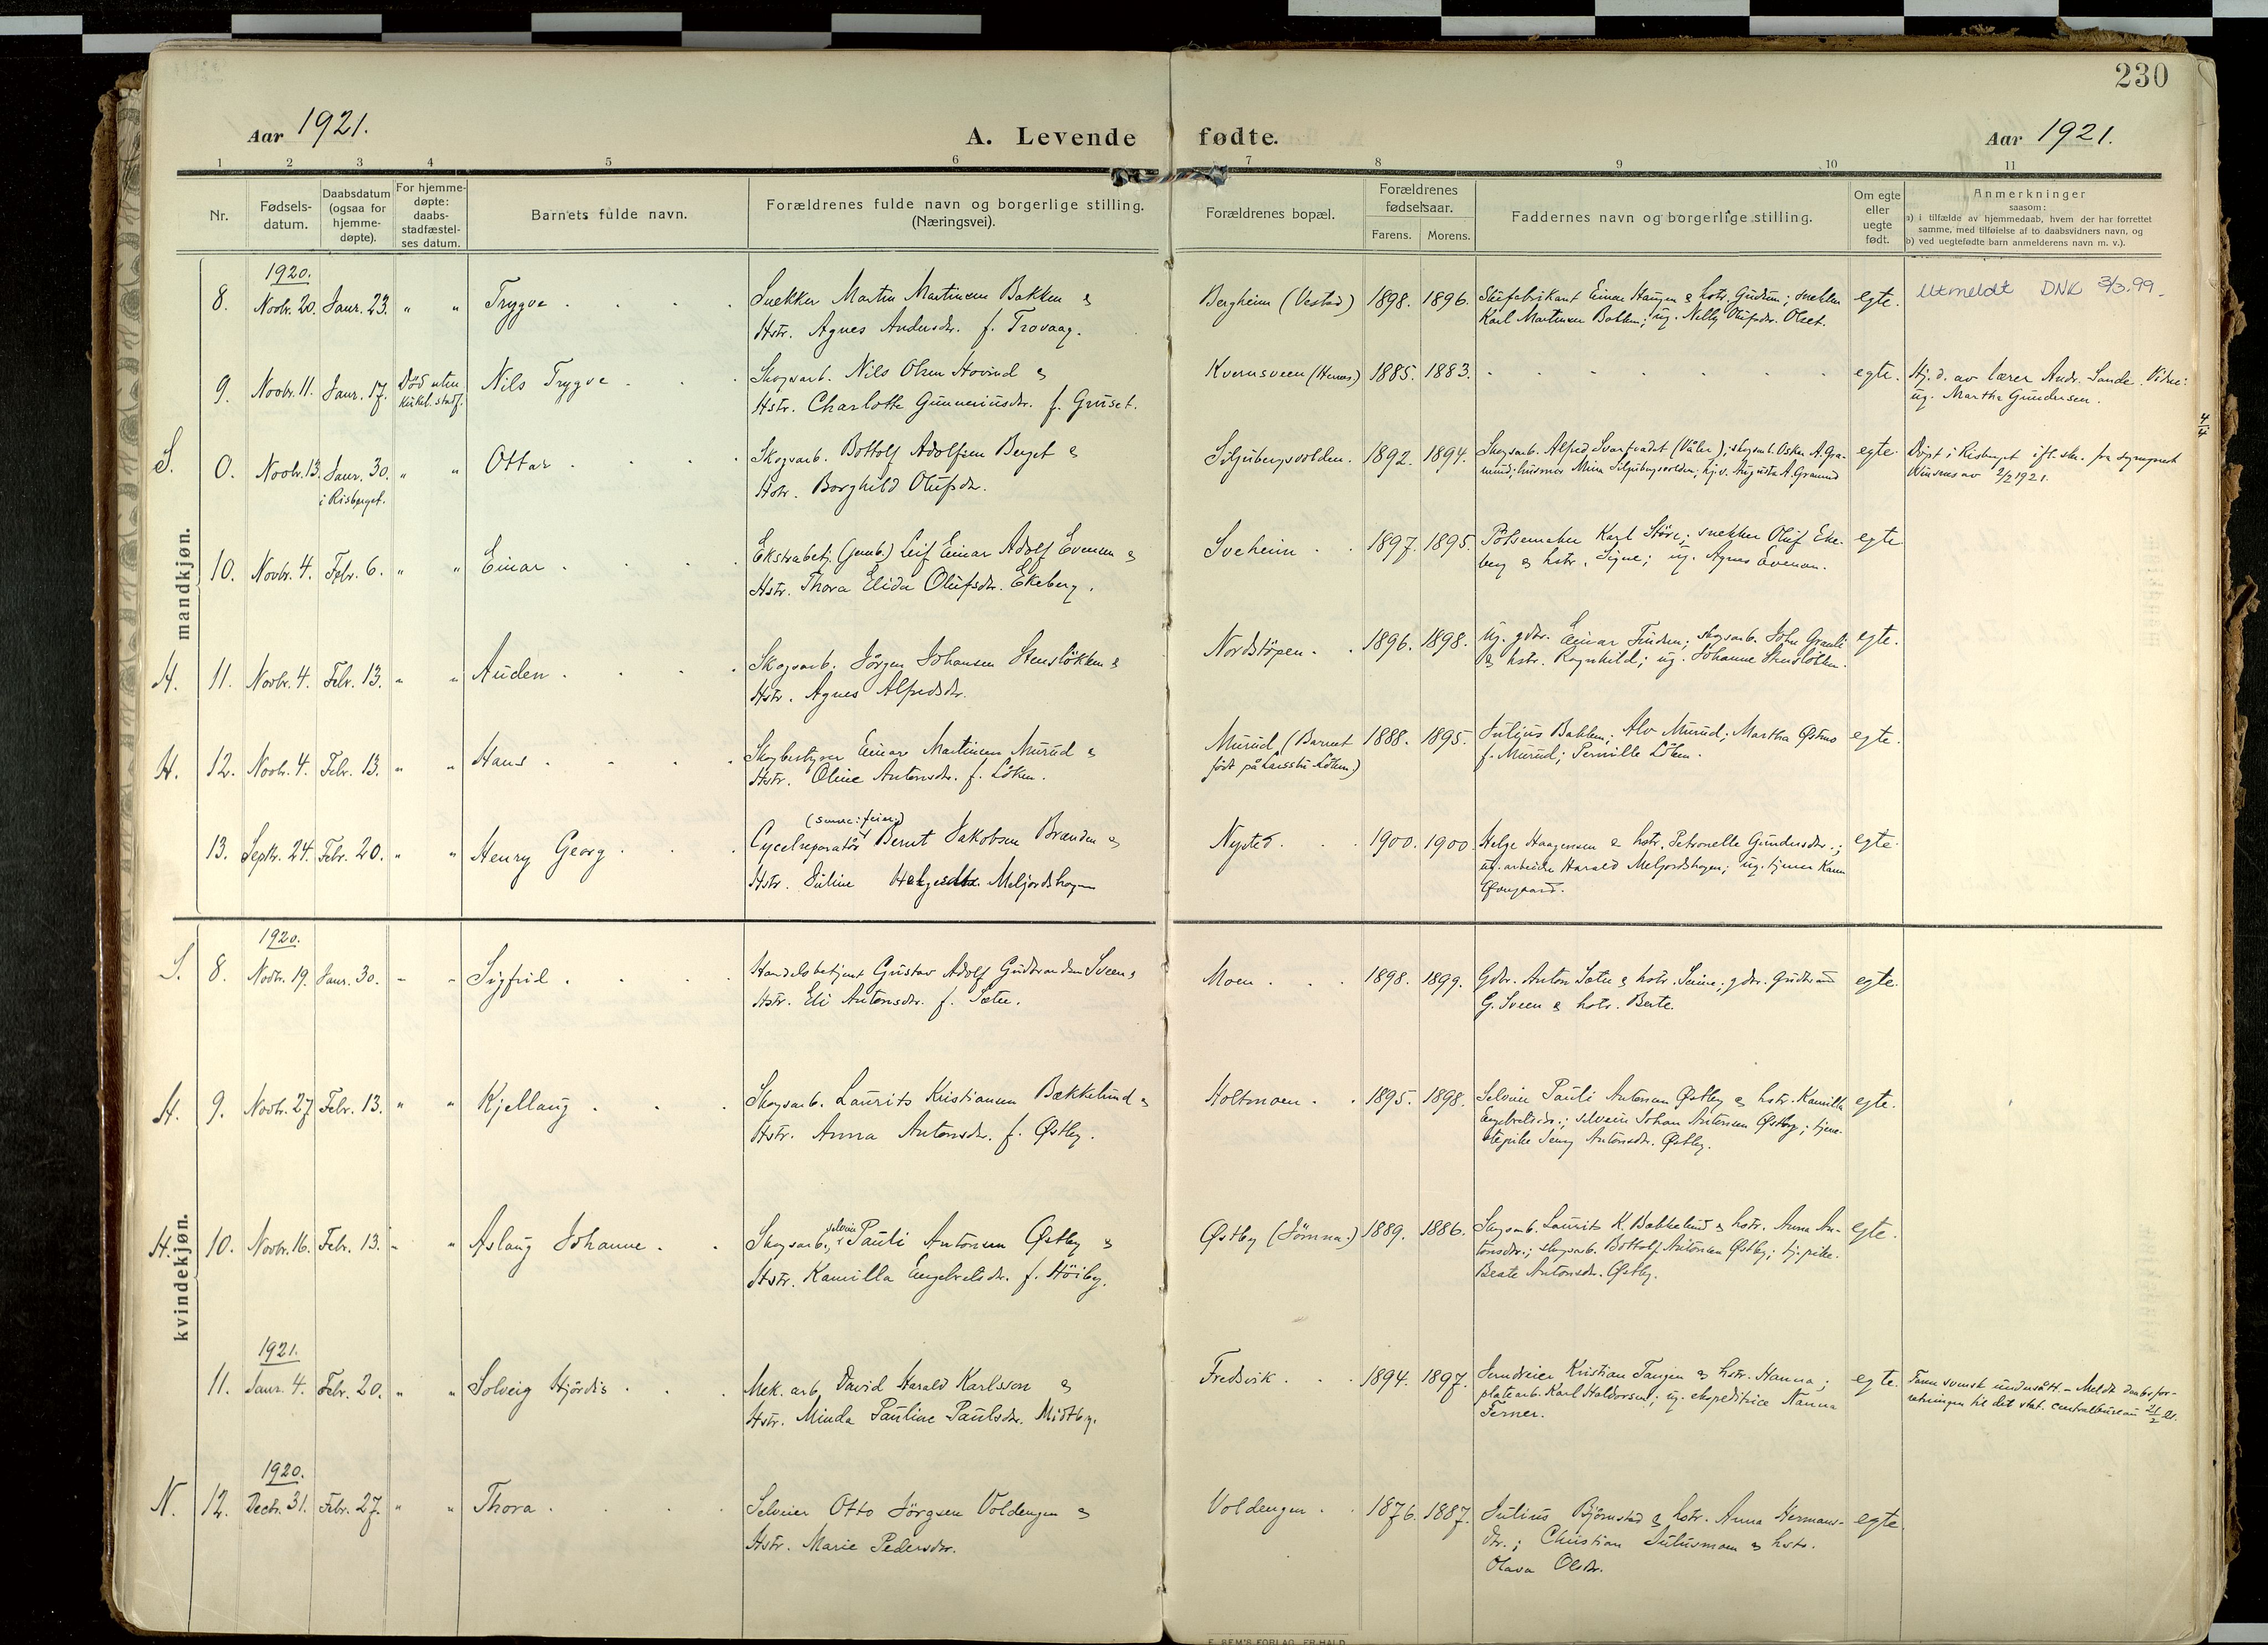 230
Aar 1921.
A. Levende fødte.
Aar 1921.
1 2 3 4 5 6 7 8 9 10 11
Nr.
Fødsels-
datum.
Daabsdatum
(ogsaa for
hjemme-
døpte).
For hjemme-
døpte:
daabs-
stadfæstel-
ses datum.
Barnets fulde navn.
Forældrenes fulde navn og borgerlige stilling.
(Næringsvei).
Forældrenes bopæl.
Forældrenes
fødselsaar.
Farens. Morens.
Faddernes navn og borgerlige stilling.
Om egte
eller
uegte
født.
Anmerkninger
saasom:
a) i tilfælde av hjemmedaab, hvem der har forrettet
samme, med tilføielse av to daabsvidners navn, og
b) ved uegtefødte barn anmelderens navn m. v.).
mandkjøn.
1920.
8. Novbr. 20. Janr. 23. " " Trygve . . . . Snekker Martin Martinsen Bakken &
Hstr. Agnes Andersdr. f. Trovaag.
Bergheim (Vestad) 1898. 1896. Skifabrikant Einar Haugen & hstr. Gudrun; snekker
Karl Martinsen Bakken; ug. Nelly Olufsdr. Olset.
egte. Utmeldt DNK 3/3.99.
9. Novbr. 11. Janr. 17. Død uten
kirkel. stadf.
Nils Trygve . . . Skogsarb. Nils Olsen Hovind &
Hstr. Charlotte Gunneriusdr. f. Gruset.
Kvernsveen (Hernes) 1885. 1883. egte. Hj. d. av lærer Andr. Sande. Vidne:
ug. Martha Gundersen.
4/4
S. 0. Novbr. 13. Janr. 30.
i Risberget.
" " Ottar . . . . Skogsarb. Bottolf Adolfsen Berget &
Hstr. Borghild Olufsdr.
Siljubergsvolden. 1892. 1894. Skogsarb. Alfred Svartvadet (Våler); skogsarb. Oskar A. Gra-
nund; husmor Mina Siljubergsvolden; hj.v. Augusta A. Granund
egte. Døpt i Risberget ifl. skr. fra sogneprest
av 2/2 1921.
10. Novbr. 4. Febr. 6. " " Einar . . . . Ekstrabetj. (jernb.) Leif Einar Adolf Evensen &
Hstr. Thora Elida Olufsdr. Ekeberg.
Sveheim . . 1897. 1895. Pølsemaker Karl Störe; snekker Oluf Eke-
berg & hstr. Signe; ug. Agnes Evensen.
egte
H. 11. Novbr. 4. Febr. 13. " " Auden . . . . Skogsarb. Jörgen Johansen Stenslökken &
Hstr. Agnes Alfredsdr.
Nordstöpen . . 1896. 1898. Ug. gdbr. Einar Finden; skogsarb. John Granli
& hstr. Ragnhild; ug. Johanne Stenslökken.
egte.
H. 12. Novbr. 4. Febr. 13. " " Hans . . . . Skogbestyrer Einar Martinsen Murud &
Hstr. Oline Antonsdr. f. Löken.
Murud (Barnet
født på Løken.)
1888. 1895. Julius Bakken; Alv Murud; Martha Østmo
f. Murud; Pernille Löken.
egte.
13. Septr. 24. Febr. 20. " " Henry Georg . . . (senere: feier)
Cycelreparatör Bernt Jakobsen Branden &
Hstr. Juline Helgesdtr. Meljordshagen
Nysted . . . 1900. 1900. Helge Haagensen & hstr. Petronelle Gundersdr.;
ug. arbeider Harald Meljordshagen; ug. tjener Karen
egte.
kvindekjøn.
1920.
S. 8. Novbr. 19. Janr. 30. - - Sigfrid . . . . Handelsbetjent Gustav Adolf Gudbrandsen Sveen &
Hstr. Eli Antonsdr. f. Sætre.
Moen . . . 1898. 1899. Gdbr. Anton Sætre & hstr. Serine; gdbr. Gudbrand
G. Sveen & hstr. Berte.
egte.
H. 9. Novbr. 27 Febr. 13. " " Kjellaug . . . Skogsarb. Laurits Kristiansen Bækkelund &
Hstr. Anna Antonsdr. f. Østby.
Holtmoen . . 1895. 1898. Selveier Pauli Antonsen Østby & hstr. Kamilla
Engebretsdr.; selveier Johan Antonsen Østby; tjene-
stepike Jenny Antonsdr. Østby.
egte.
H. 10. Novbr. 16. Febr. 13. " " Aslaug Johanne . . Skogsarb., selveier Pauli Antonsen Østby &
Hstr. Kamilla Engebretsdr. f. Höiby.
Østby (Jömna.) 1889. 1886. Skogsarb. Laurits K. Bækkelund & hstr. Anna An-
tonsdr.; skogsarb. Bottolf Antonsen Østby; tj.pike
Beate Antonsdr. Østby.
egte.
1921.
11. Janr. 4. Febr. 20. " " Solveig Hjördis . . . Mek. arb. David Harald Karlsson &
Hstr. Minda Pauline Paulsdr. Midtby.
Fredsvik . . . 1894. 1897. Jerndreier Kristian Tangen & hstr. Hanna;
platearb. Karl Haldorsen; ug. ekspeditrice Nanna
Ferner.
egte. Faren svensk undersått. - Meldt daabsfor-
retningen til det stat. centralbureau 21/2 21.
1920.
N. 12. Decbr. 31. Febr. 27. " " Thora . . . . Selveier Otto Jörgsen Voldengen &
Hstr. Marie Pedersdr.
Voldengen . . 1876. 1887. Julius Björnstad & hstr. Anna Hermans-
dtr.; Christian Juliusmoen & hstr.
Olava Olsdr.
egte.